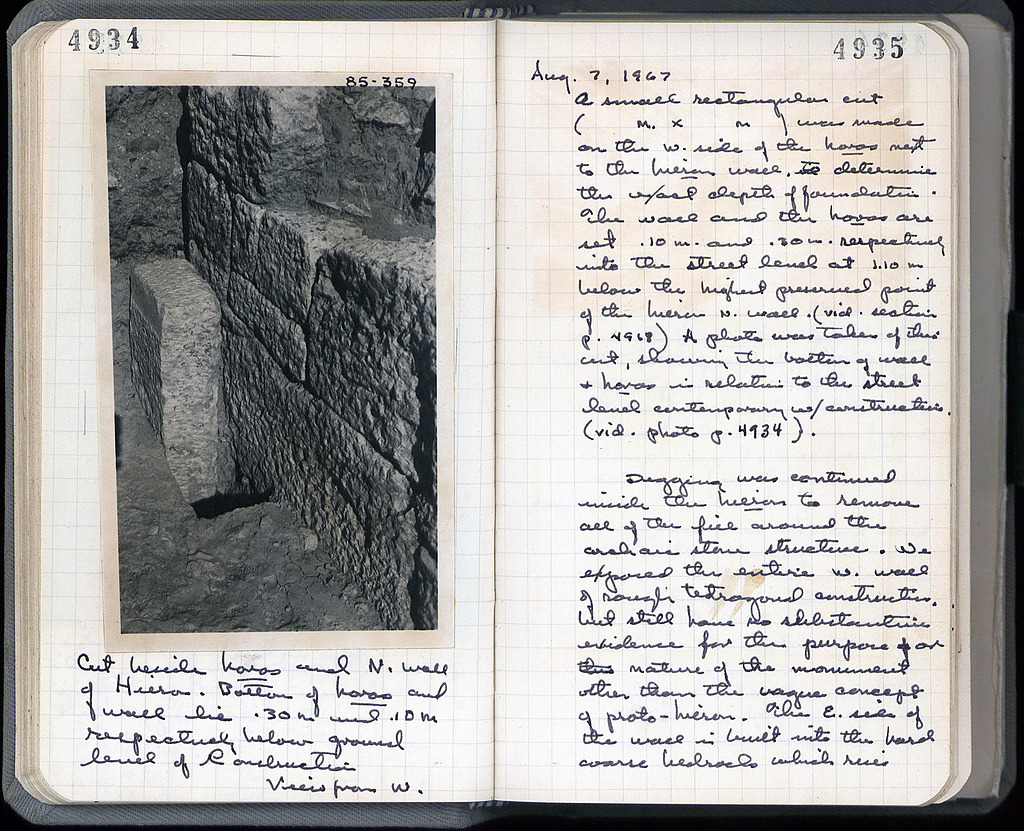 4934
85-359
Cut beside horos and N. wall
of Hieron. Bottom of horos and
wall lie .30 m and .10 m
respectively below ground
level of Construction
View from W.
4935
Aug. 7, 1967
A small rectangular cut
( m. x m ) was made
on the W. side of the horos next
to the hieron wall, to determine
the exact depth of foundation.
The wall and the horos are
set .10 m. and .30 m. respectively
into the street level at 1.10 m
below the highest preserved point
of the hieron N. wall. (vid. section
p. 4918) A photo was taken of this
cut, showing the bottom of wall
+ horos in relation to the street
level contemporary w/ construction.
(vid. photo p. 4934).
Digging was continued
inside the hieron to remove
all of the fill around the
archaic stone structure. We
exposed the entire W. wall
of rough tetragonal construction,
but still have no substantive
evidence for the purpose or
nature of the monument
other than the vague concept
of proto-hieron. The E. side of
the wall is built into the hard
coarse bedrock which rises